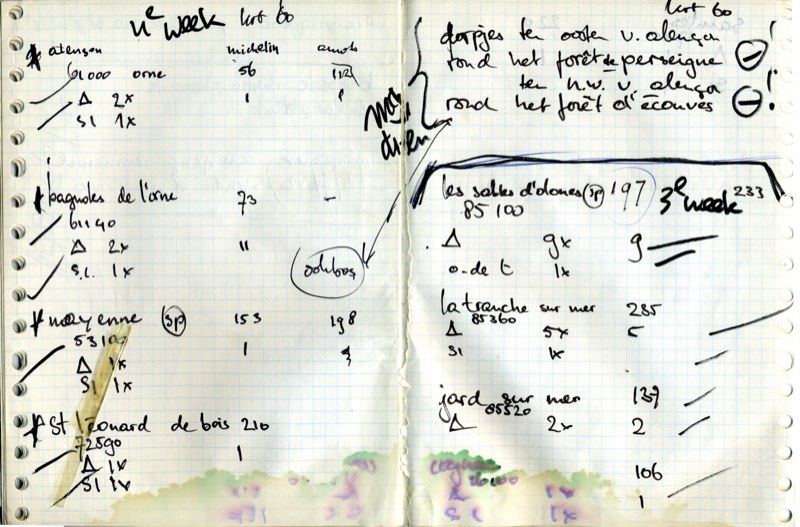 2e week krt 60
* alençon michelin
61000 orne 56 112
Δ 2x 1
SI 1x
* bagnoles de l'orne 73 -
61140
Δ 2x "
S.I. 1x
* mayenne sp 153 198
53100 1
Δ 1x
SI 1x
* St Léonard de bois 210
72590 1
Δ 1x
SI 1x
krt 60
dorpjes ten oosten v. alençon
rond het forêt de perseigne !
ten n.w. v. alençon
rond het forêt d'écouves !
ook bos
les sables d'olonnes sp 197 3e week 233
85100
Δ 9x 9
o.de t 1x
la tranche sur mer 285
85360
Δ 5x 5
SI 1x
jard sur mer 139
85520
Δ 2x 2
106
1